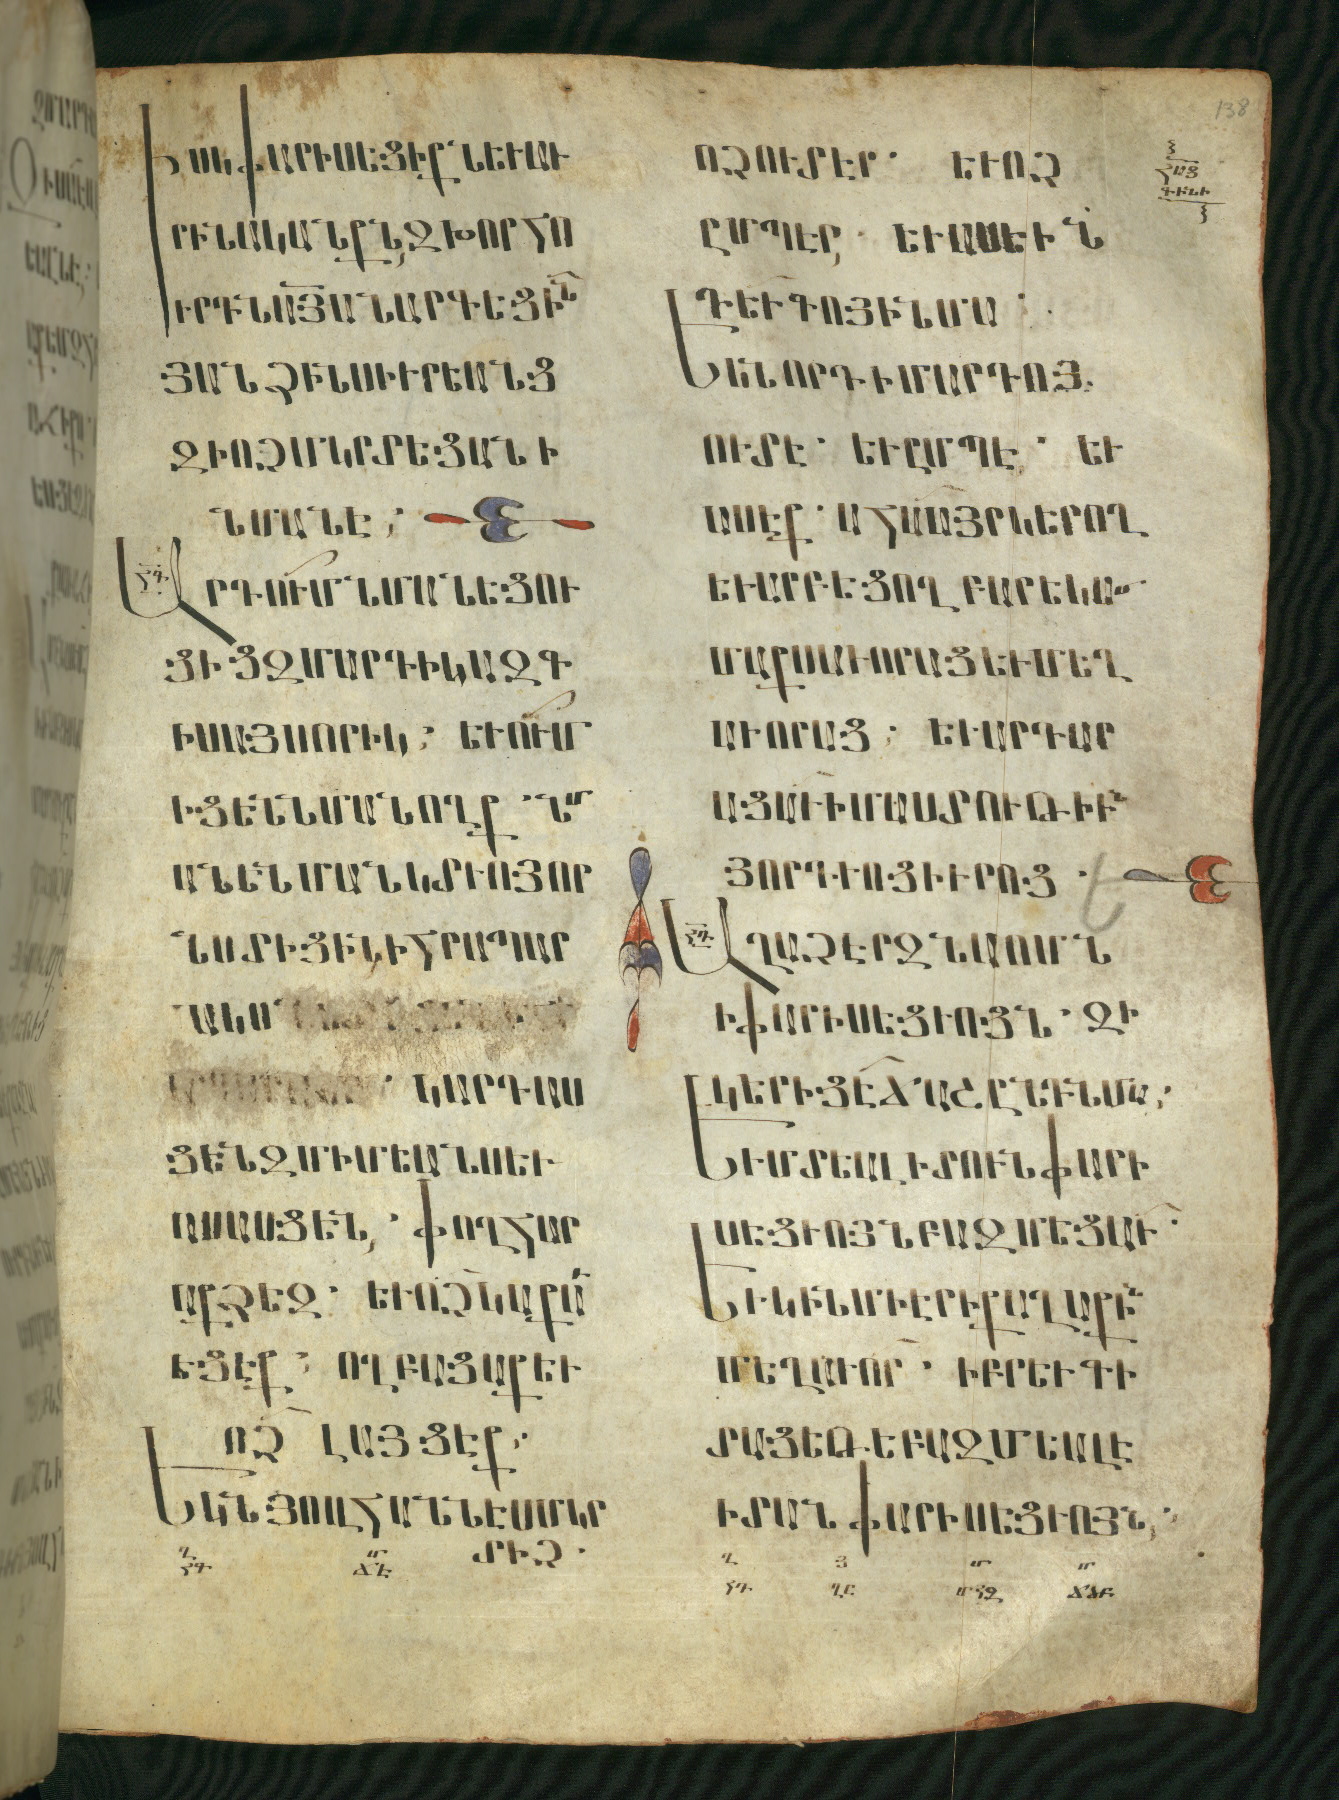 138
ԻՍԿ ՓԱՐԻՍԵՑԻՔՆ ԵՒ ԱՒ
ՐԻՆԱԿԱՆՔՆ, ԶԽՈՐՀՈ
ՒՐԴՆ ԱՅ ԱՆԱՐԳԵՑԻՆ
ՅԱՆՁԻՆՍ ԻՒՐԵԱՆՑ
ԶԻ ՈՉ ՄԿՐՏԵՑԱՆ Ի
ՆՄԱՆԷ։
ԱՐԴ ՈՒՄ ՆՄԱՆԵՑՈՒ
ՑԻՑ ԶՄԱՐԴԻԿ ԱԶԳ
ԻՍ ԱՅՍՈՐԻԿ։ ԵՒ ՈՒՄ
ԻՑԵՆ ՆՄԱՆՈՂՔ· ՆՄ
ԱՆ ԵՆ ՄԱՆԿՏՒՈՅ ՈՐ
ՆՍՏԻՑԻՆ Ի ՀՐԱՊԱՐ
ԱԿՍ
ԿԱՐԴԱՍ
ՑԵՆ ԶՄԻՄԵԱՆՍ ԵՒ
ԱՍԱՍՑԵՆ, ՓՈՂ ՀԱՐ
ԱՔ ՁԵԶ· ԵՒ ՈՉ ԿԱՔԱՒ
ԵՑԷՔ· ՈՂԲԱՑԱՔ ԵՒ
ՈՉ ԼԱՅՑԷՔ·
ԵԿՆ ՅՈՎՀԱՆՆԷՍ ՄԿՐ
ՏԻՉ·
ՈՉ ՈՒՏԷՐ· ԵՒ ՈՉ
ԸՄՊԷՐ, ԵՒ ԱՍԵԻՆ
ԴԵՒ ԳՈՅ Ի ՆՄԱ·
ԵԿՆ ՈՐԴԻ ՄԱՐԴՈՅ
ՈՒՏԷ· ԵՒ ԸՄՊԷ· ԵՒ
ԱՍԷՔ· ԱՀԱ ԱՅՐ ԿԵՐՈՂ
ԵՒ ԱՐԲԵՑՈՂ ԲԱՐԵԿԱՄ
ՄԱՔՍԱՒՈՐԱՑ ԵՒ ՄԵՂ
ԱՒՈՐԱՑ· ԵՒ ԱՐԴԱՐ
ԱՑԱՒ ԻՄԱՍՏՈՒԹԻՒՆ
ՅՈՐԴՒՈՑ ԻՒՐՈՑ·
ԱՂԱՉԷՐ ԶՆԱ ՈՄՆ
Ի ՓԱՐԻՍԵՑՒՈՅՆ· ԶԻ
ԿԵՐԻՑԷ ՃԱՇ ԸՆԴ ՆՄԱ։
ԵՒ ՄՏԵԱԼ Ի ՏՈՒՆ ՓԱՐԻ
ՍԵՑՒՈՅՆ ԲԱԶՄԵՑԱՒ·
ԵՒ ԿԻՆ ՄԻ ԷՐ Ի ՔԱՂԱՔԻՆ
ՄԵՂԱՒՈՐ· ԻԲՐԵՒ ԳԻ
ՏԱՑ ԵԹԷ ԲԱԶՄԵԱԼ Է
Ի ՏԱՆ ՓԱՐԻՍԵՑՒՈՅՆ։